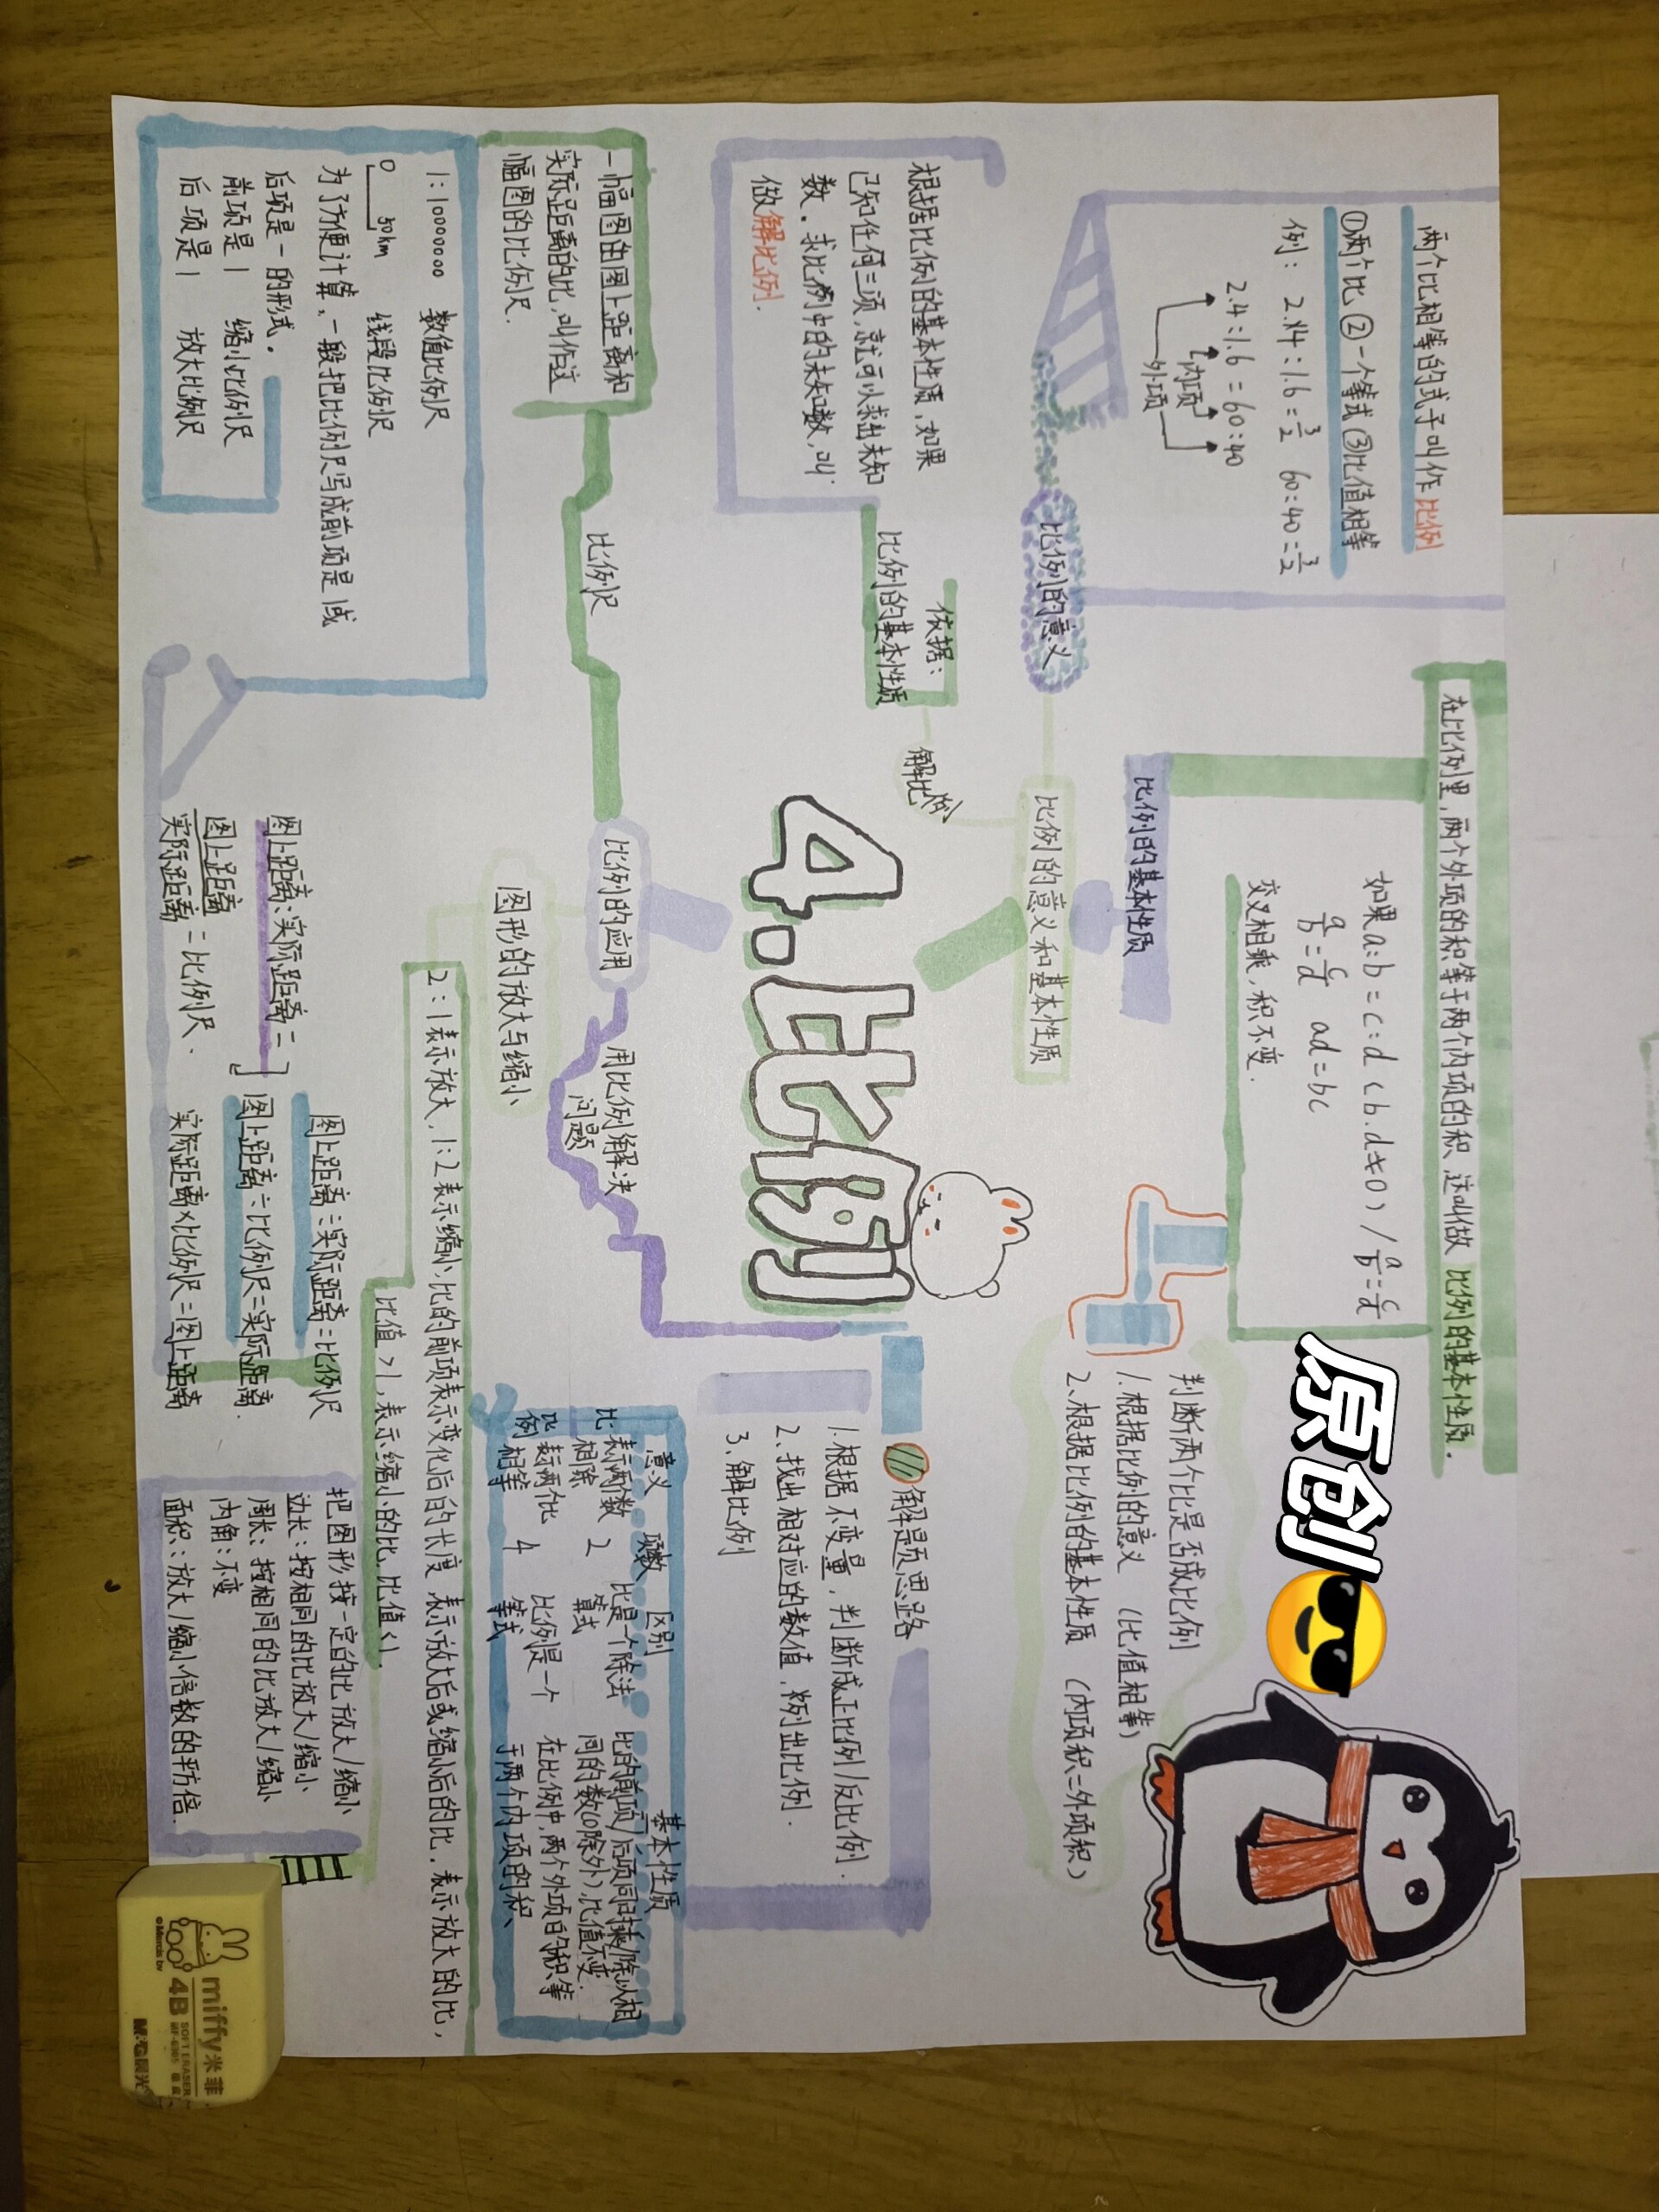 两个比相等的式子叫作比例
①两个比②一个等式③比值相等
例：2.4:1.6=3/2 60:40=3/2
2.4:1.6=60:40
内项
外项
比例的意义
在比例里，两个外项的积等于两个内项的积，这叫做 比例的基本性质.
如果a:b=c:d (b.d≠0) / a/b=c/d
a/b=c/d ad=bc
交叉相乘，积不变.
比例的基本性质
比例的意义和基本性质
原创
判断两个比是否成比例
1.根据比例的意义 (比值相等)
2.根据比例的基本性质 (内项积=外项积)
根据比例的基本性质，如果
已知任何三项，就可以求出未知
数。求比例中的未知数，叫
做解比例.
依据：
比例的基本性质
解比例
4.比例
解题思路
1.根据不变量，判断成正比例/反比例.
2.找出相对应的数值，列出比例.
3.解比例
一幅图的图上距离和
实际距离的比，叫作这
幅图的比例尺.
比例尺
比例的应用
用比例解决
问题
图形的放大与缩小
意义 项数 区别 基本性质
比 表示两个数相除 2 比是一个除法算式 比的前项/后项同时乘/除以相同的数(0除外)，比值不变.
比例 表示两个比相等 4 比例是一个等式 在比例中，两个外项的积等于两个内项的积、
1:1000000 数值比例尺
0 50km 线段比例尺
为了方便计算，一般把比例尺写成前项是1或
后项是一的形式。
前项是1 缩小比例尺
后项是1 放大比例尺
2:1表示放大，1:2表示缩小，比的前项表示变化后的长度，表示放大后或缩小后的比，表示放大的比，
比值>1，表示缩小的比，比值<1.
图上距离:实际距离=
图上距离/实际距离=比例尺、
图上距离÷实际距离=比例尺
图上距离÷比例尺=实际距离.
实际距离×比例尺=图上距离
把图形按一定的比放大/缩小
边长：按相同的比放大/缩小
周长：按相同的比放大/缩小
内角：不变
面积：放大/缩小倍数的平方倍.
miffy米菲
4B SOFT ERASER
©Mercis bv
M&G晨光